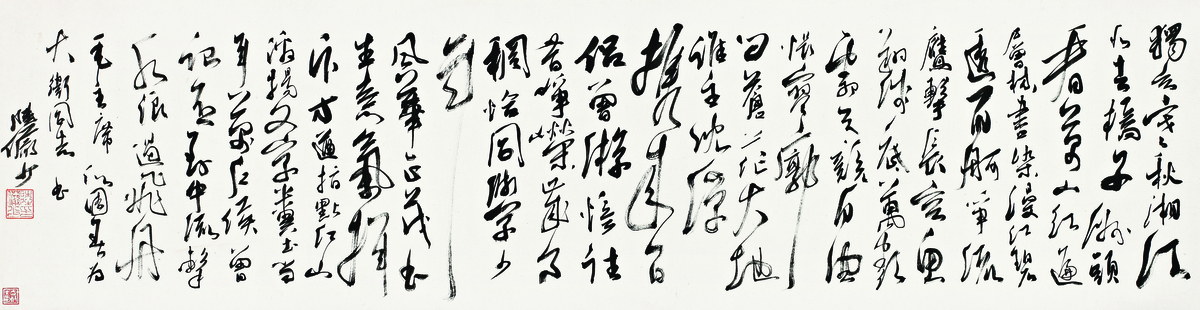 獨立寒秋湘江
北去橘子洲頭
看萬山紅遍
層林盡染漫江碧
透百舸爭流
鷹擊長空魚
翔淺底萬類
霜天競自由
悵寥廓
問蒼茫大地
誰主沉浮
攜來百
侶曾游憶往
昔崢嶸歲月
稠恰同學少
年
風華正茂書
生意氣揮
斥方遒指點江山
激揚文字糞土當
年萬户侯曾
記否到中流擊
水浪遏飛舟
毛主席沁園春為
大衛同志書
陸儼少